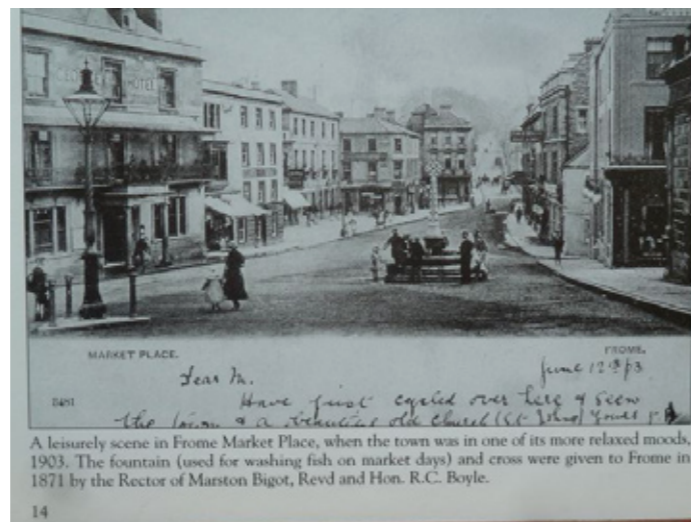 GEORGE HOTEL
MARKET PLACE.
FROME.
June 12th /03
Dear M.
8481
Have just cycled over here & seen
the town & a beautiful old church (St Johns) Yours
A leisurely scene in Frome Market Place, when the town was in one of its more relaxed moods,
1903. The fountain (used for washing fish on market days) and cross were given to Frome in
1871 by the Rector of Marston Bigot, Revd and Hon. R.C. Boyle.
14